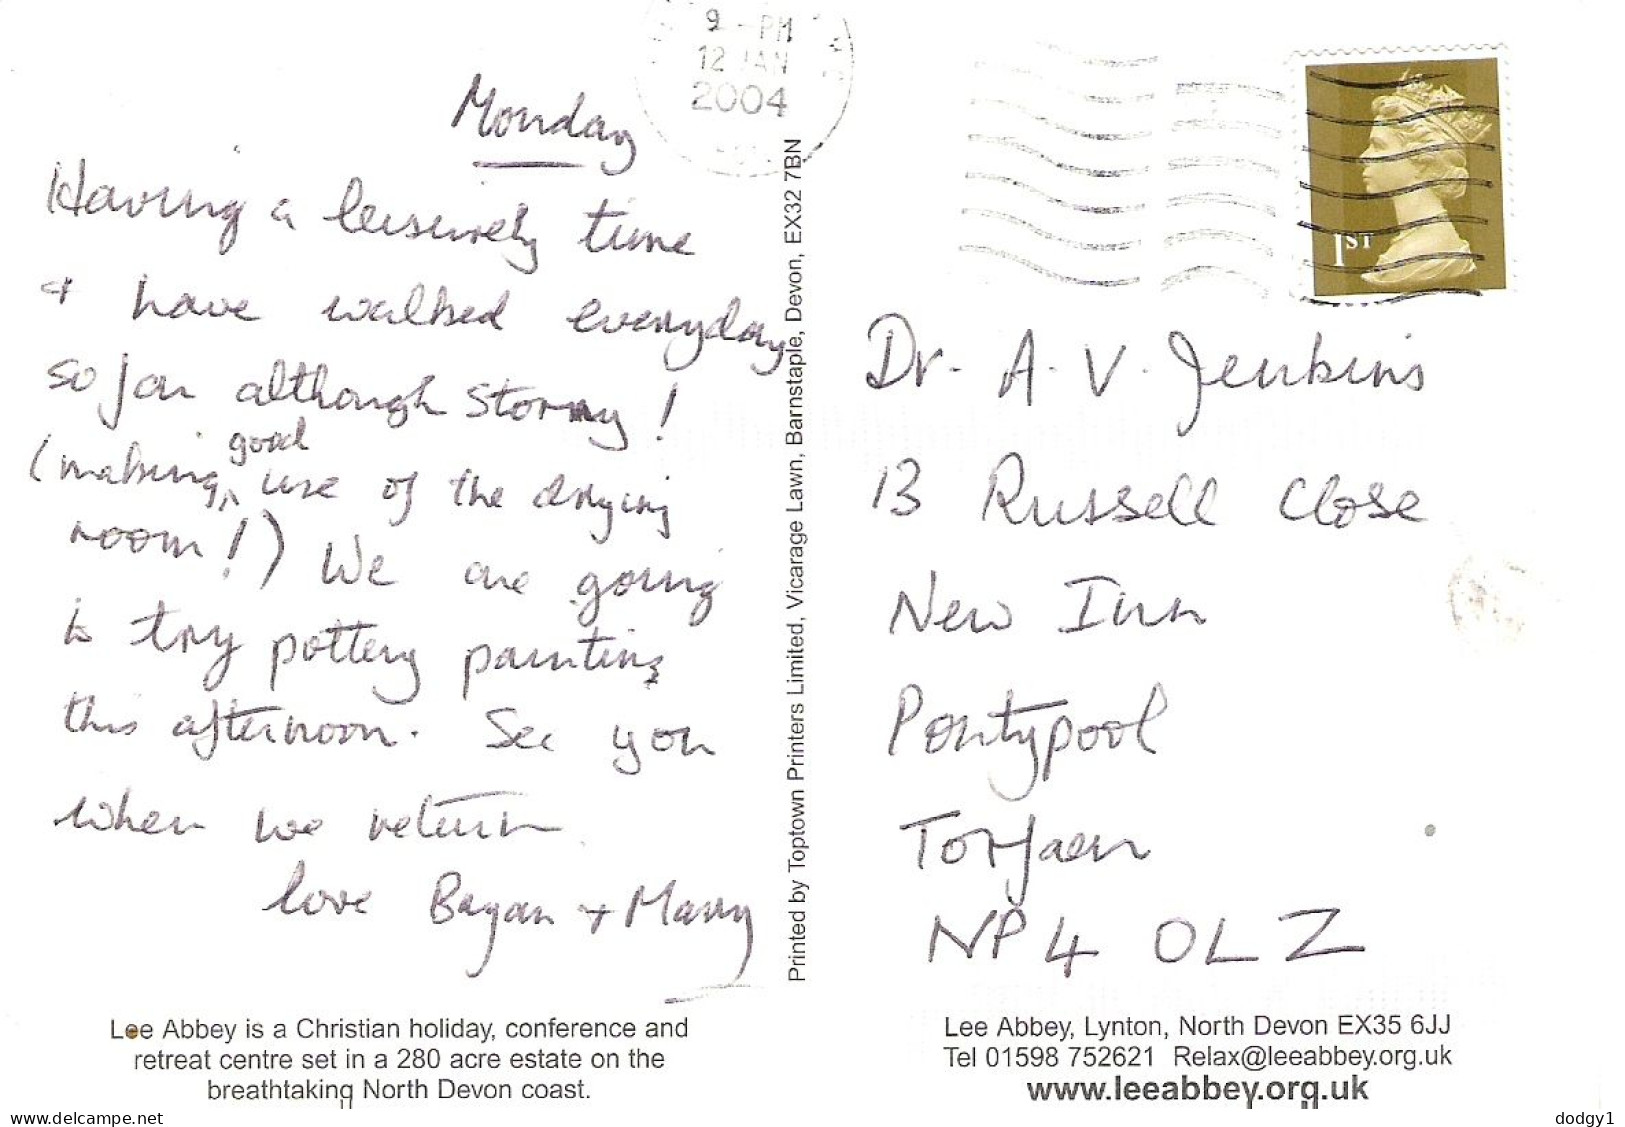 9 - PM
12 JAN
2004
Monday
Having a leisurely time
+ have walked everyday
so far although stormy!
(making good use of the drying
room!) We are going
to try pottery painting
this afternoon. See you
when we return
love Bryan + Mary
Lee Abbey is a Christian holiday, conference and
retreat centre set in a 280 acre estate on the
breathtaking North Devon coast.
Printed by Toptown Printers Limited, Vicarage Lawn, Barnstaple, Devon, EX32 7BN
1ST
Dr. A. V. Jenkins
13 Russell Close
New Inn
Pontypool
Torfaen
NP4 0LZ
Lee Abbey, Lynton, North Devon EX35 6JJ
Tel 01598 752621 Relax@leeabbey.org.uk
www.leeabbey.org.uk
www.delcampe.net
dodgy1